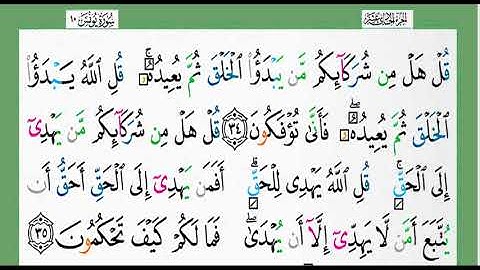 الجزء الحادي عشر سورة يونس ١٠
قُلْ هَلْ مِن شُرَكَآئِكُم مَّن يَبْدَؤُا۟ ٱلْخَلْقَ ثُمَّ يُعِيدُهُۥ ۚ قُلِ ٱللَّهُ يَبْدَؤُا۟
ٱلْخَلْقَ ثُمَّ يُعِيدُهُۥ ۖ فَأَنَّىٰ تُؤْفَكُونَ ٣٤ قُلْ هَلْ مِن شُرَكَآئِكُم مَّن يَهْدِىٓ
إِلَى ٱلْحَقِّ ۚ قُلِ ٱللَّهُ يَهْدِى لِلْحَقِّ ۗ أَفَمَن يَهْدِىٓ إِلَى ٱلْحَقِّ أَحَقُّ أَن
يُتَّبَعَ أَمَّن لَّا يَهِدِّىٓ إِلَّآ أَن يُهْدَىٰ ۖ فَمَا لَكُمْ كَيْفَ تَحْكُمُونَ ٣٥